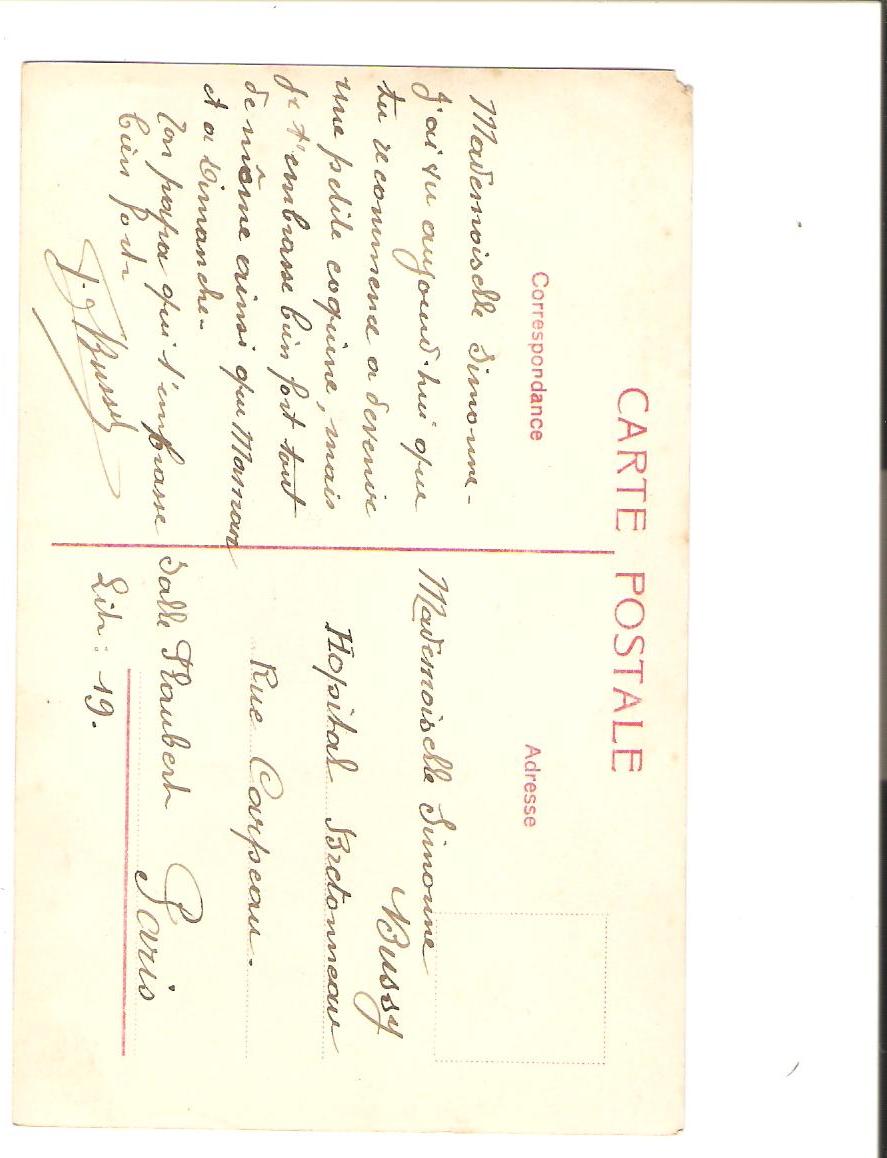 CARTE POSTALE
Correspondance
Mademoiselle Simonne -
J'ai su aujourd'hui que
tu recommence a devenir
une petite coquine, mais
je t'embrasse bien fort tout
de même ainsi que Maman
et a Dimanche -
Ton papa qui t'embrasse
bien fort
Adresse
Mademoiselle Simonne
Bussy
Hopital Bretonneau
Rue Carpeau.
Salle Flaubert Paris
Lit: 19.